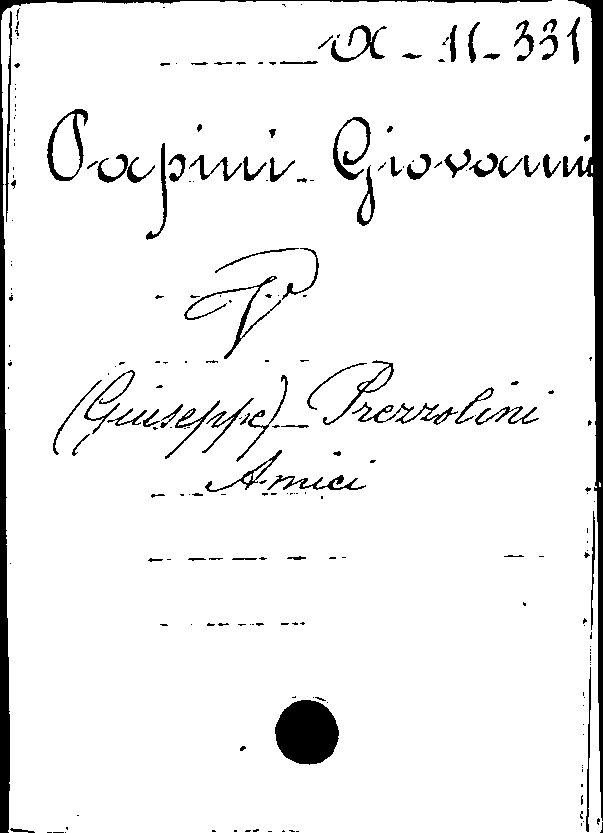 α - 11 - 331
Papini Giovanni
V
(Giuseppe) Prezzolini
Amici